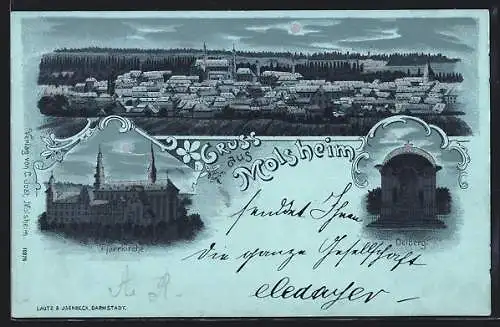 Gruss
aus
Molsheim
Pfarrkirche
Oelberg.
sendet Ihnen
die ganze Gesellschaft
Verlag von
Molsheim.
LAUTZ & ISENBECK, DARMSTADT.